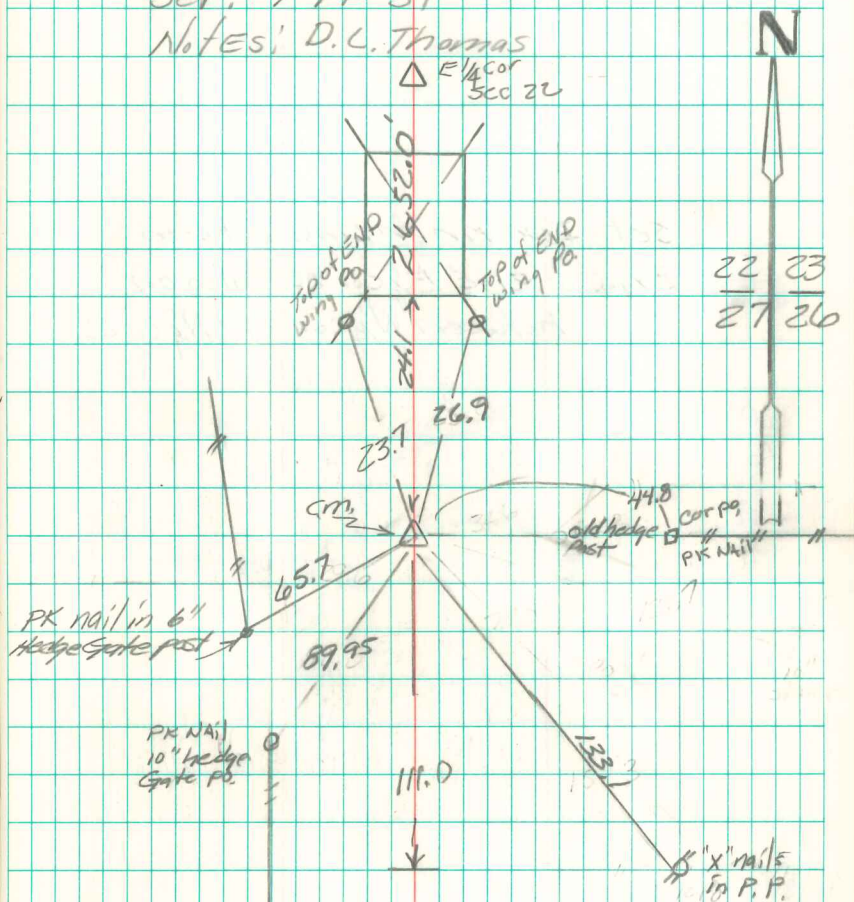 Notes: D.L. Thomas
N
E 1/4 cor
Sec 22
2652.0'
Top of END
wing po
Top of END
wing po
22 23
27 26
24.1
23.7
26.9
44.8
cm.
old hedge
post
cor po,
PK NAil
65.7
PK nail in 6"
Hedge Gate post
89.95
PK NAil
10" hedge
Gate po.
111.0
133.1
"X" nails
in P. P.